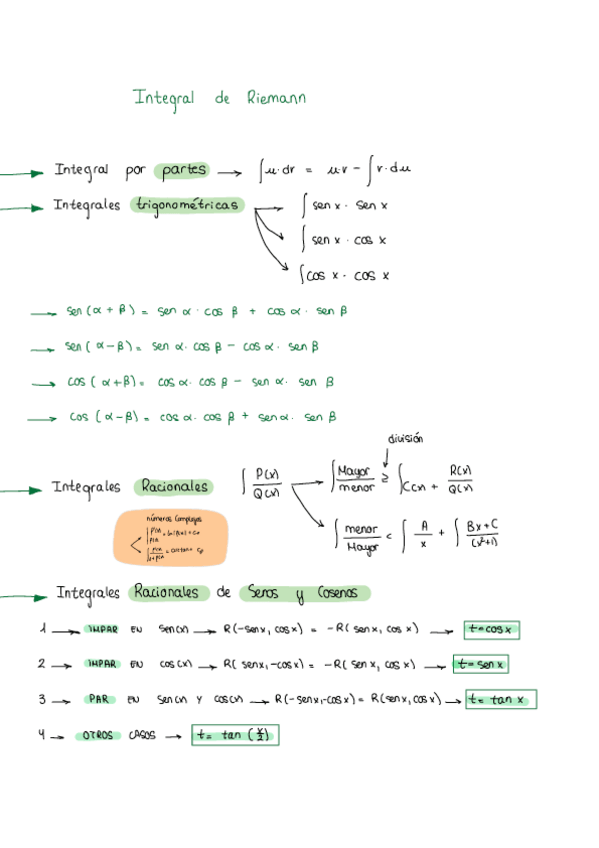 Integral de Riemann
Integral por partes → ∫u·dv = u·v − ∫v·du
Integrales trigonométricas → ∫sen x · sen x
∫sen x · cos x
∫cos x · cos x
→ sen (α + β) = sen α · cos β + cos α · sen β
→ sen (α − β) = sen α · cos β − cos α · sen β
→ cos (α + β) = cos α · cos β − sen α · sen β
→ cos (α − β) = cos α · cos β + sen α · sen β
división
Integrales Racionales ∫ P(x)/Q(x) → ∫ Mayor/menor ≥ ∫ C(x) + R(x)/Q(x)
∫ menor/Mayor < ∫ A/x + ∫ Bx+C/(x²+1)
números complejos
Integrales Racionales de Senos y Cosenos
1 → IMPAR EN sen(x) → R(-senx, cosx) = -R(senx, cos x) → t=cosx
2 → IMPAR EN cos(x) → R(senx,-cosx) = -R(sen x, cos x) → t=sen x
3 → PAR EN sen(x) Y cos(x) → R(-senx,-cosx) = R(senx, cosx) → t= tan x
4 → OTROS CASOS → t= tan (x/2)